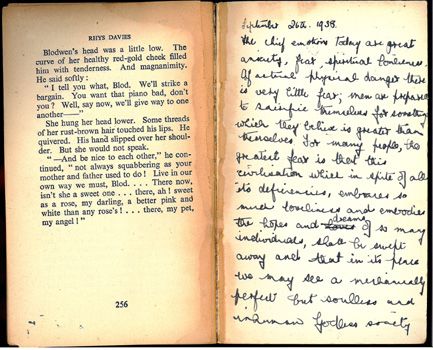 RHYS DAVIES
Blodwen's head was a little low. The
curve of her healthy red-gold cheek filled
him with tenderness. And magnanimity.
He said softly:
" I tell you what, Blod. We'll strike a
bargain. You want that piano bad, don't
you? Well, say now, we'll give way to one
another——"
She hung her head lower. Some threads
of her rust-brown hair touched his lips. He
quivered. His hand slipped over her shoul-
der. But she would not speak.
" —And be nice to each other," he con-
tinued, " not always squabbling as your
mother and father used to do! Live in our
own way we must, Blod. . . . There now,
isn't she a sweet one . . . there, ah! sweet
as a rose, my darling, a better pink and
white than any rose's! . . . there, my pet,
my angel!"
256
September 26th. 1938.
The chief emotions today are great
anxiety, fear, spiritual loneliness.
Of actual physical danger there
is very little fear; men are prepared
to sacrifice themselves for something
which they believe is greater than
themselves. For many people, the
greatest fear is that this
civilisation which in spite of all
its deficiencies, embraces so
much loveliness and embodies
dreams
the hopes and of so many
individuals, shall be swept
away and that in its place
we may see a mechanically
perfect but soulless and
inhuman Godless society